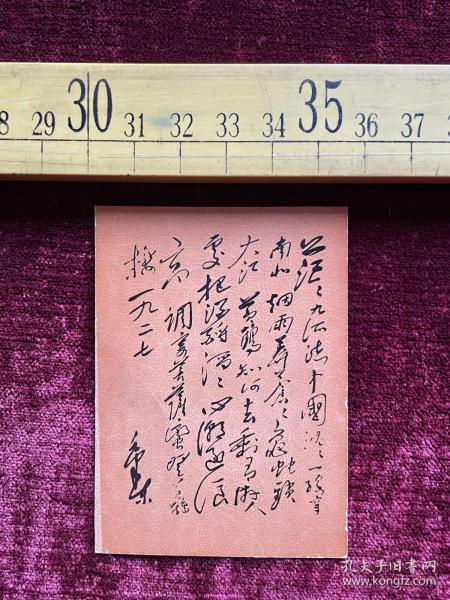 8 29 30 31 32 33 34 35 36 37
茫〻九派流中國沉〻一線穿
南北烟雨莽蒼〻龜蛇鎖
大江 黄鶴知何去剩有遊人
處把酒酹滔〻心潮逐浪
高 調寄菩薩蠻登黄鶴
樓 一九二七
毛澤東
孔夫子旧书网
www.kongfz.com